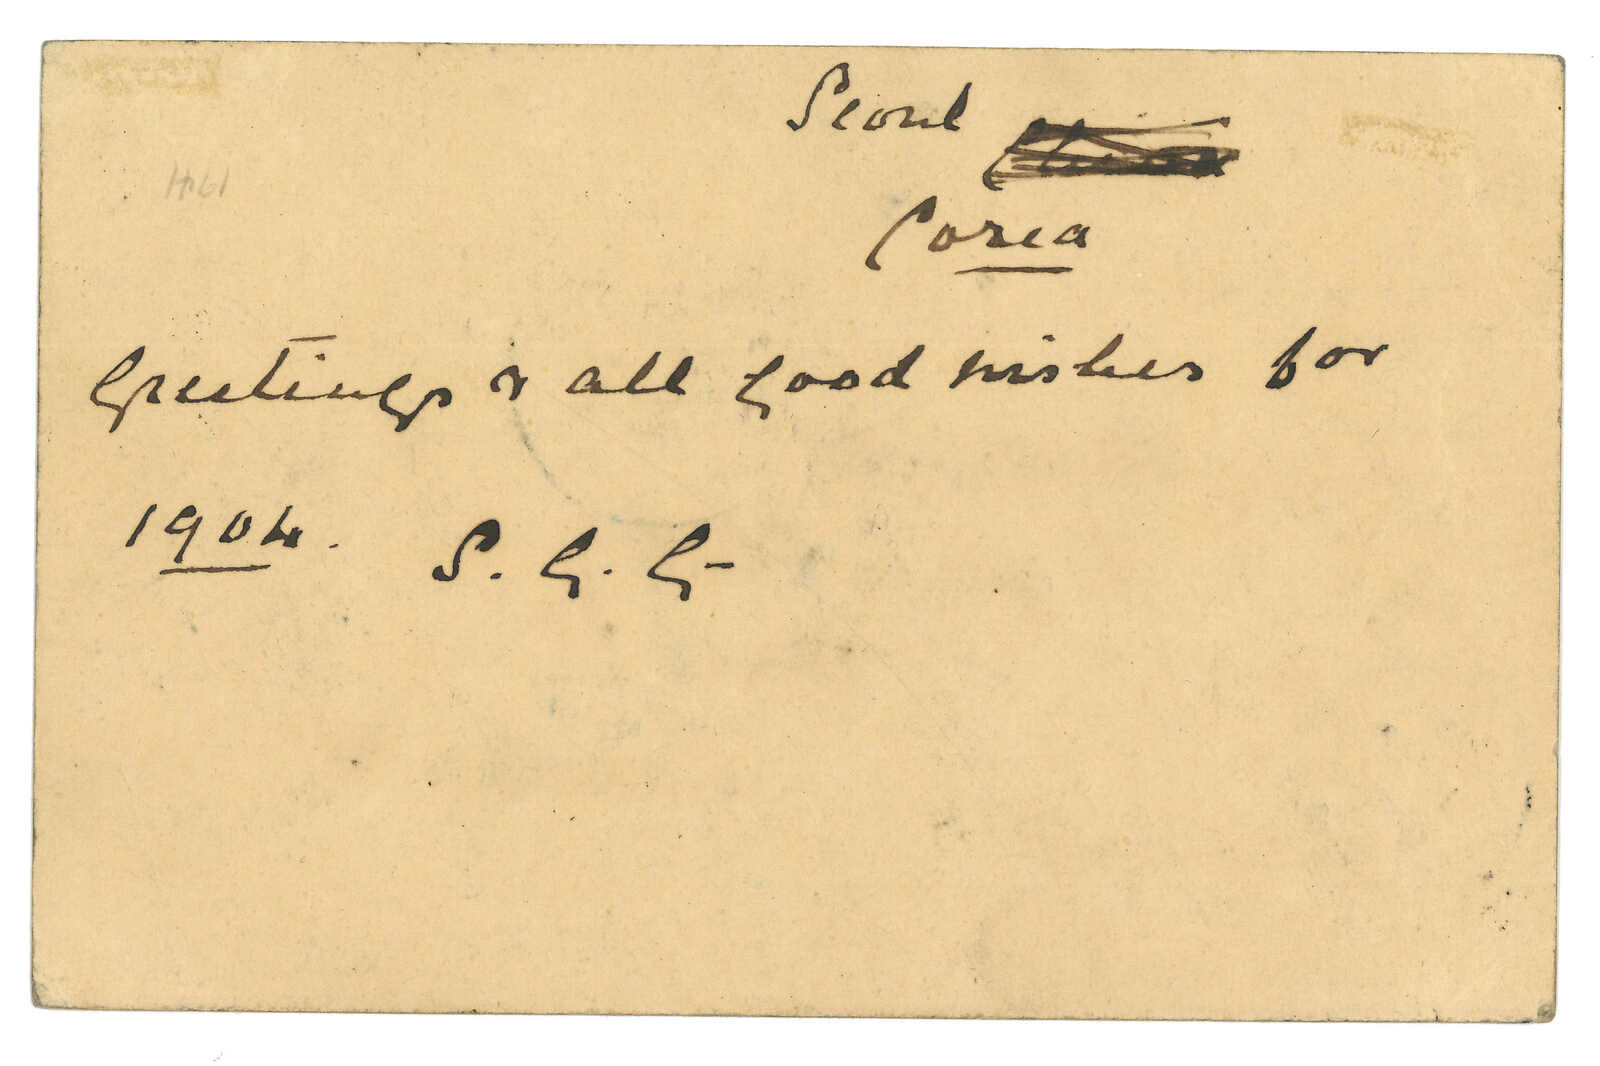 Seoul
Corea
Greetings & all good wishes for
1904. S. G. G-